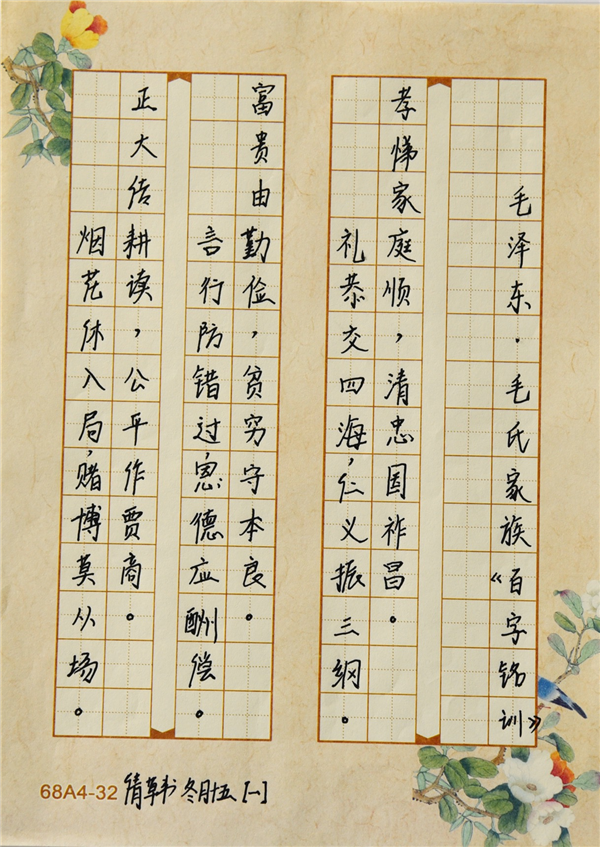 毛泽东·毛氏家族《百字铭训》
孝悌家庭顺，清忠国祚昌。
礼恭交四海，仁义振三纲。
富贵由勤俭，贫穷守本良。
言行防错过，恩德应酬偿。
正大耕读，公平作贾商。
烟花休入局，赌博莫从场。
68A4-32 倩草书 冬月十五 [一]